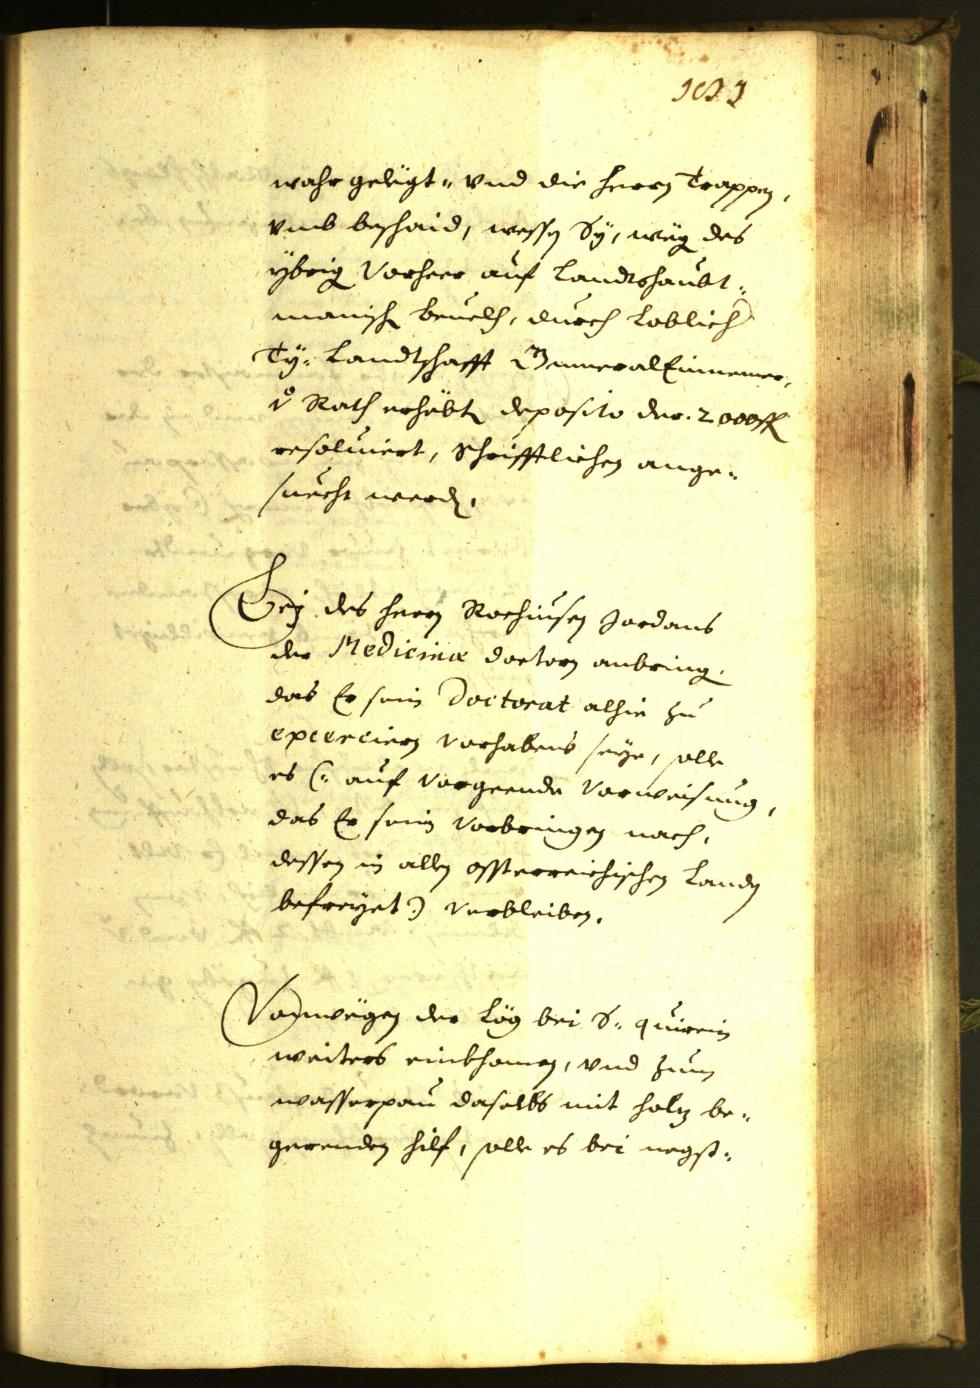 wahr gelegt: vnd die herrn Trappen,
vmb beschaid, wessen Sÿ, weg des
ÿbrig Vorheer auf Landtshaubt¬
manisch beuelch, durch Loblich
Tÿ: Landtschafft Generaleinnemer,
Rath erhebt deposito der 2000 fl
resoluiert, Schrifftlichen ange¬
suecht werd.
Beÿ des herrn Jordans
der Medicinæ doctorn anbring,
das Er sein Doctorat alhie zu
exerciern vorhabens seÿe, solle
es (: auf vorgeende vorweisung,
das Er sein vorbringen nach,
dessen in allen ossterreichischen Landen
befreÿet:) verbleiben.
Vonwegen der Leg bei S: Quirein
weiters einkhomen, vnd zum
wasserpau daselbs mit holz be¬
gerenden hilf, solle es bei negst¬